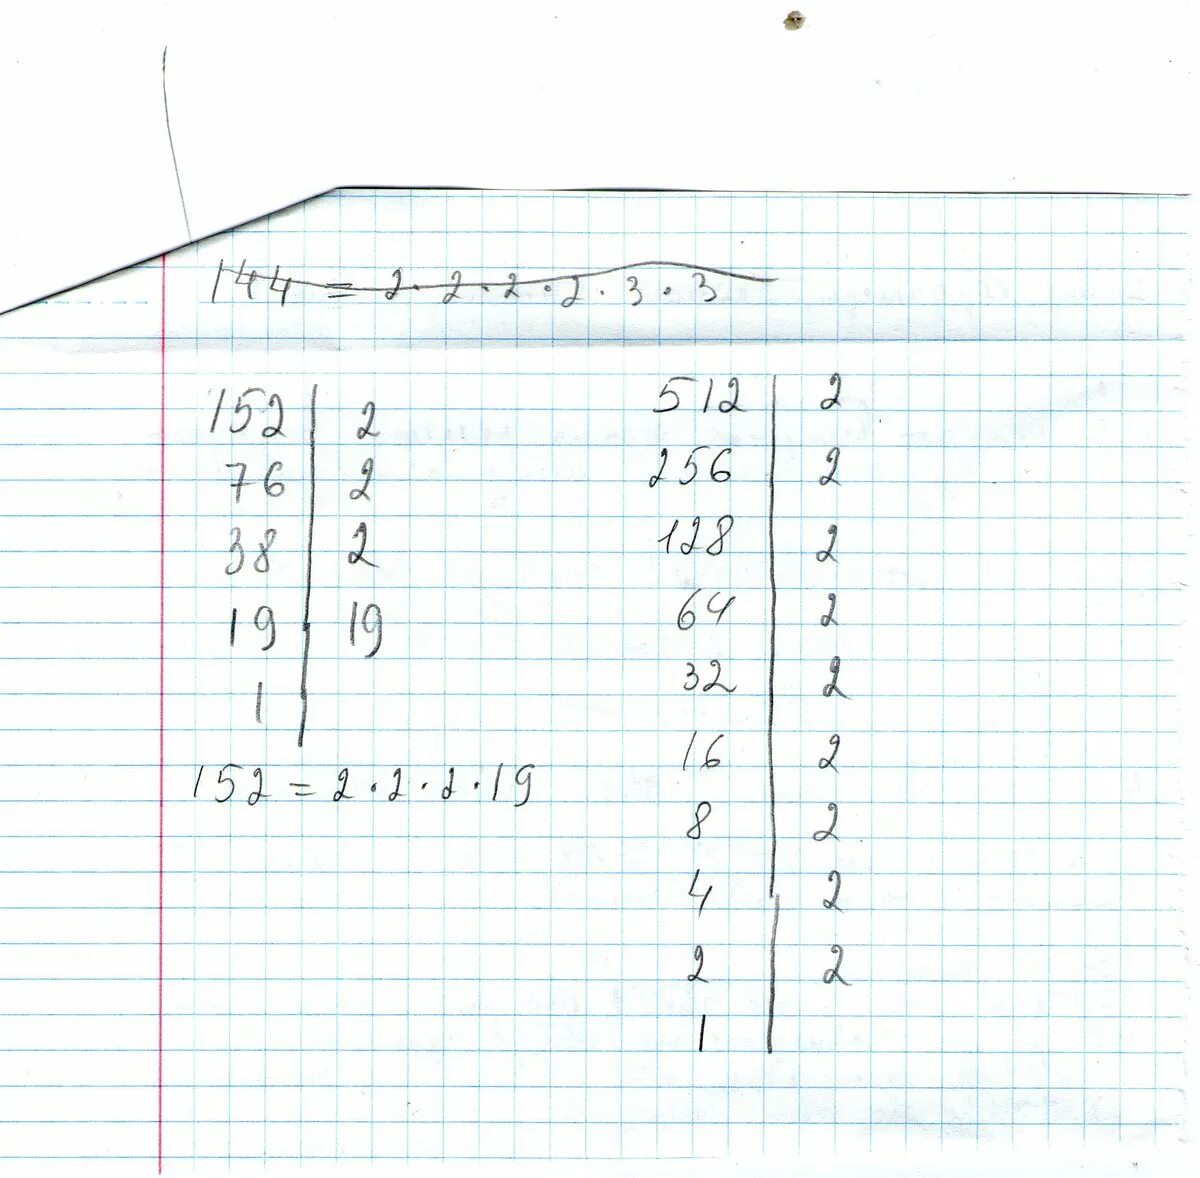 144 = 2 · 2 · 2 · 2 · 3 · 3
152 | 2
76 | 2
38 | 2
19 | 19
1 |
152 = 2 · 2 · 2 · 19
512 | 2
256 | 2
128 | 2
64 | 2
32 | 2
16 | 2
8 | 2
4 | 2
2 | 2
1 |